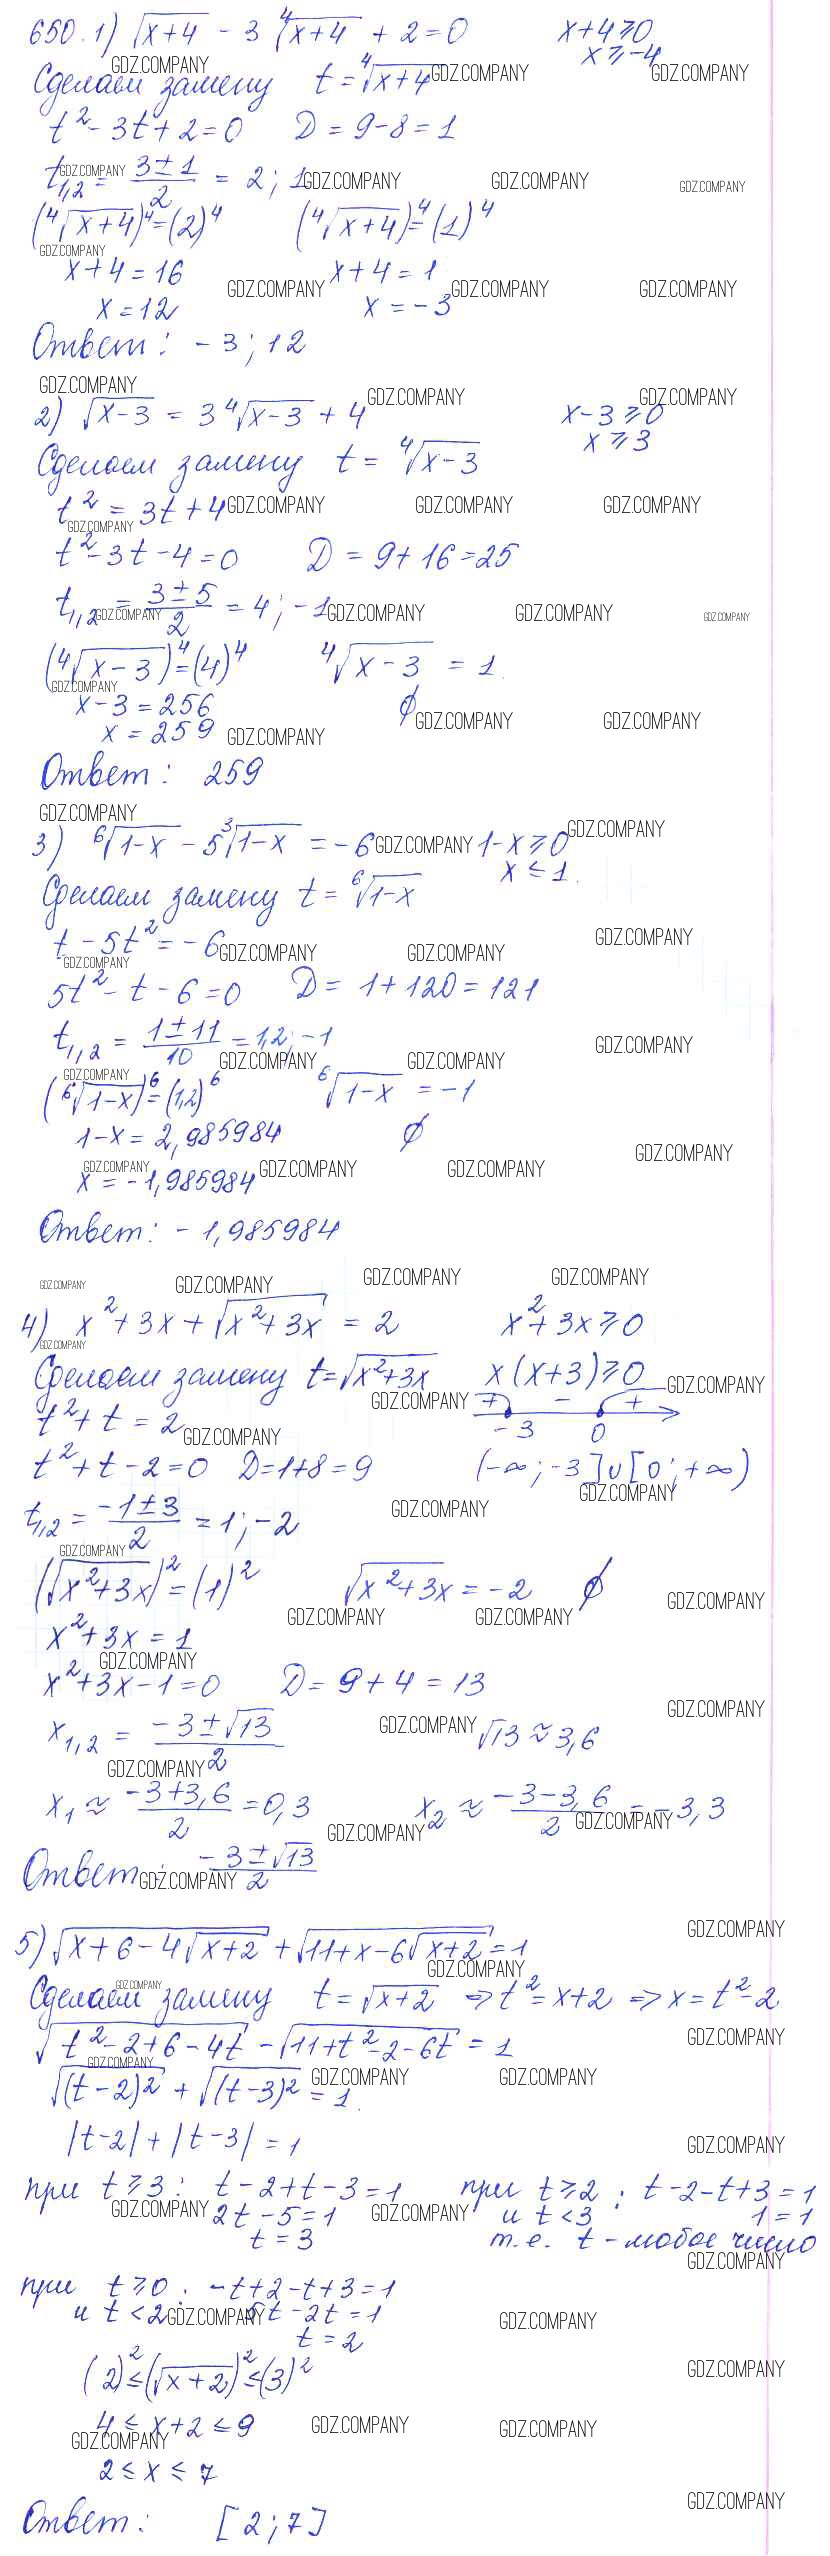 650. 1) √(x+4) - 3 ⁴√(x+4) + 2 = 0    x+4 ≥ 0
x ≥ -4
Сделаем замену t = ⁴√(x+4)
t² - 3t + 2 = 0    D = 9 - 8 = 1
t₁,₂ = (3 ± 1)/2 = 2; 1
(⁴√(x+4))⁴ = (2)⁴    (⁴√(x+4))⁴ = (1)⁴
x+4 = 16    x+4 = 1
x = 12    x = -3
Ответ: -3; 12
2) √(x-3) = 3 ⁴√(x-3) + 4    x-3 ≥ 0
x ≥ 3
Сделаем замену t = ⁴√(x-3)
t² = 3t + 4
t² - 3t - 4 = 0    D = 9 + 16 = 25
t₁,₂ = (3 ± 5)/2 = 4; -1
(⁴√(x-3))⁴ = (4)⁴    ⁴√(x-3) = 1
x - 3 = 256    ∅
x = 259
Ответ: 259
3) ⁶√(1-x) - 5 ³√(1-x) = -6    1-x ≥ 0
x ≤ 1.
Сделаем замену t = ⁶√(1-x)
t - 5t² = -6
5t² - t - 6 = 0    D = 1 + 120 = 121
t₁,₂ = (1 ± 11)/10 = 1,2; -1
(⁶√(1-x))⁶ = (1,2)⁶    ⁶√(1-x) = -1
1-x = 2,985984    ∅
x = -1,985984
Ответ: -1,985984
4) x² + 3x + √(x²+3x) = 2    x² + 3x ≥ 0
Сделаем замену t = √(x²+3x)    x(x+3) ≥ 0
+ - +
t² + t = 2    -3    0
t² + t - 2 = 0    D = 1+8 = 9    (-∞; -3] ∪ [0; +∞)
t₁,₂ = (-1 ± 3)/2 = 1; -2
(√(x²+3x))² = (1)²    √(x²+3x) = -2    ∅
x² + 3x = 1
x² + 3x - 1 = 0    D = 9 + 4 = 13
x₁,₂ = (-3 ± √13)/2    √13 ≈ 3,6
x₁ ≈ (-3+3,6)/2 = 0,3    x₂ ≈ (-3-3,6)/2 = -3,3
Ответ: (-3 ± √13)/2
5) √(x+6-4√(x+2)) + √(11+x-6√(x+2)) = 1
Сделаем замену t = √(x+2) => t² = x+2 => x = t² - 2
√(t²-2+6-4t) - √(11+t²-2-6t) = 1
√((t-2)²) + √((t-3)²) = 1.
|t-2| + |t-3| = 1
при t ≥ 3: t-2+t-3 = 1    при t ≥ 2 : t-2-t+3 = 1
2t - 5 = 1    и t < 3    1 = 1
t = 3    т.е. t - любое число
при t ≥ 0 : -t+2-t+3 = 1
и t < 2    5t - 2t = 1
t = 2
(2)² ≤ (√(x+2))² ≤ (3)²
4 ≤ x+2 ≤ 9
2 ≤ x ≤ 7
Ответ: [2; 7]
GDZ.COMPANY